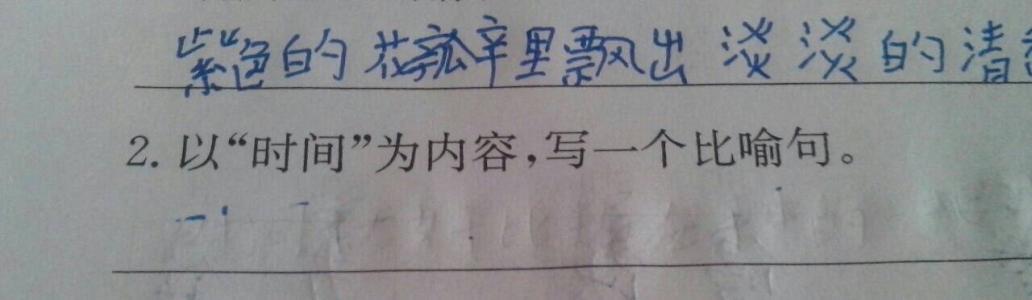 紫色的花瓣里飘出淡淡的清
2.以“时间”为内容,写一个比喻句。